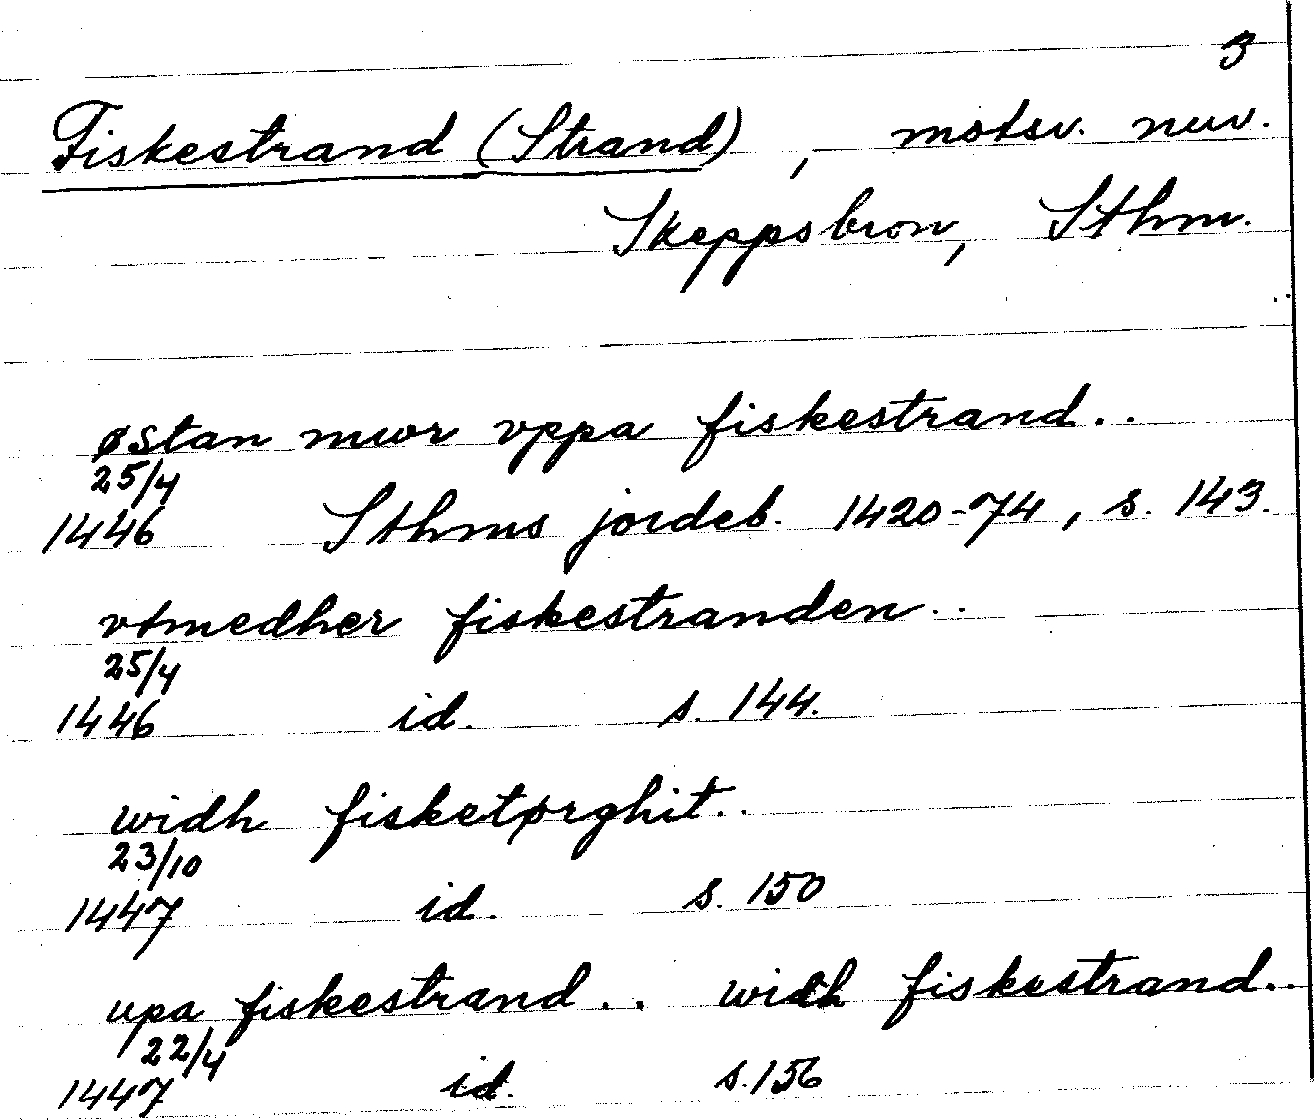 3
Fiskestrand (Strand), motsv. nuv.
Skeppsbron, Sthm.
østan mwr vppa fiskestrand..
25/4
1446 Sthms jordeb. 1420-74, s. 143.
vtmedher fiskestranden..
25/4
1446 id. s. 144.
widh fisketørghit..
23/10
1447 id. s. 150
upa fiskestrand.. widh fiskestrand..
22/4
1447 id. s. 156